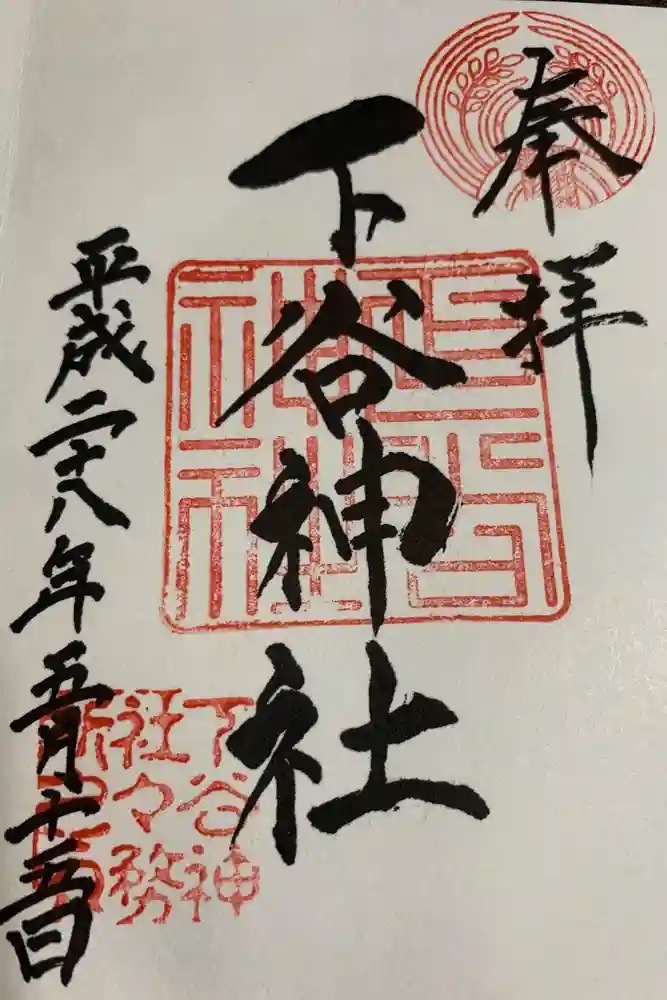 奉拝
下谷神社
平成二十八年五月十五日
下谷神
社々務
所